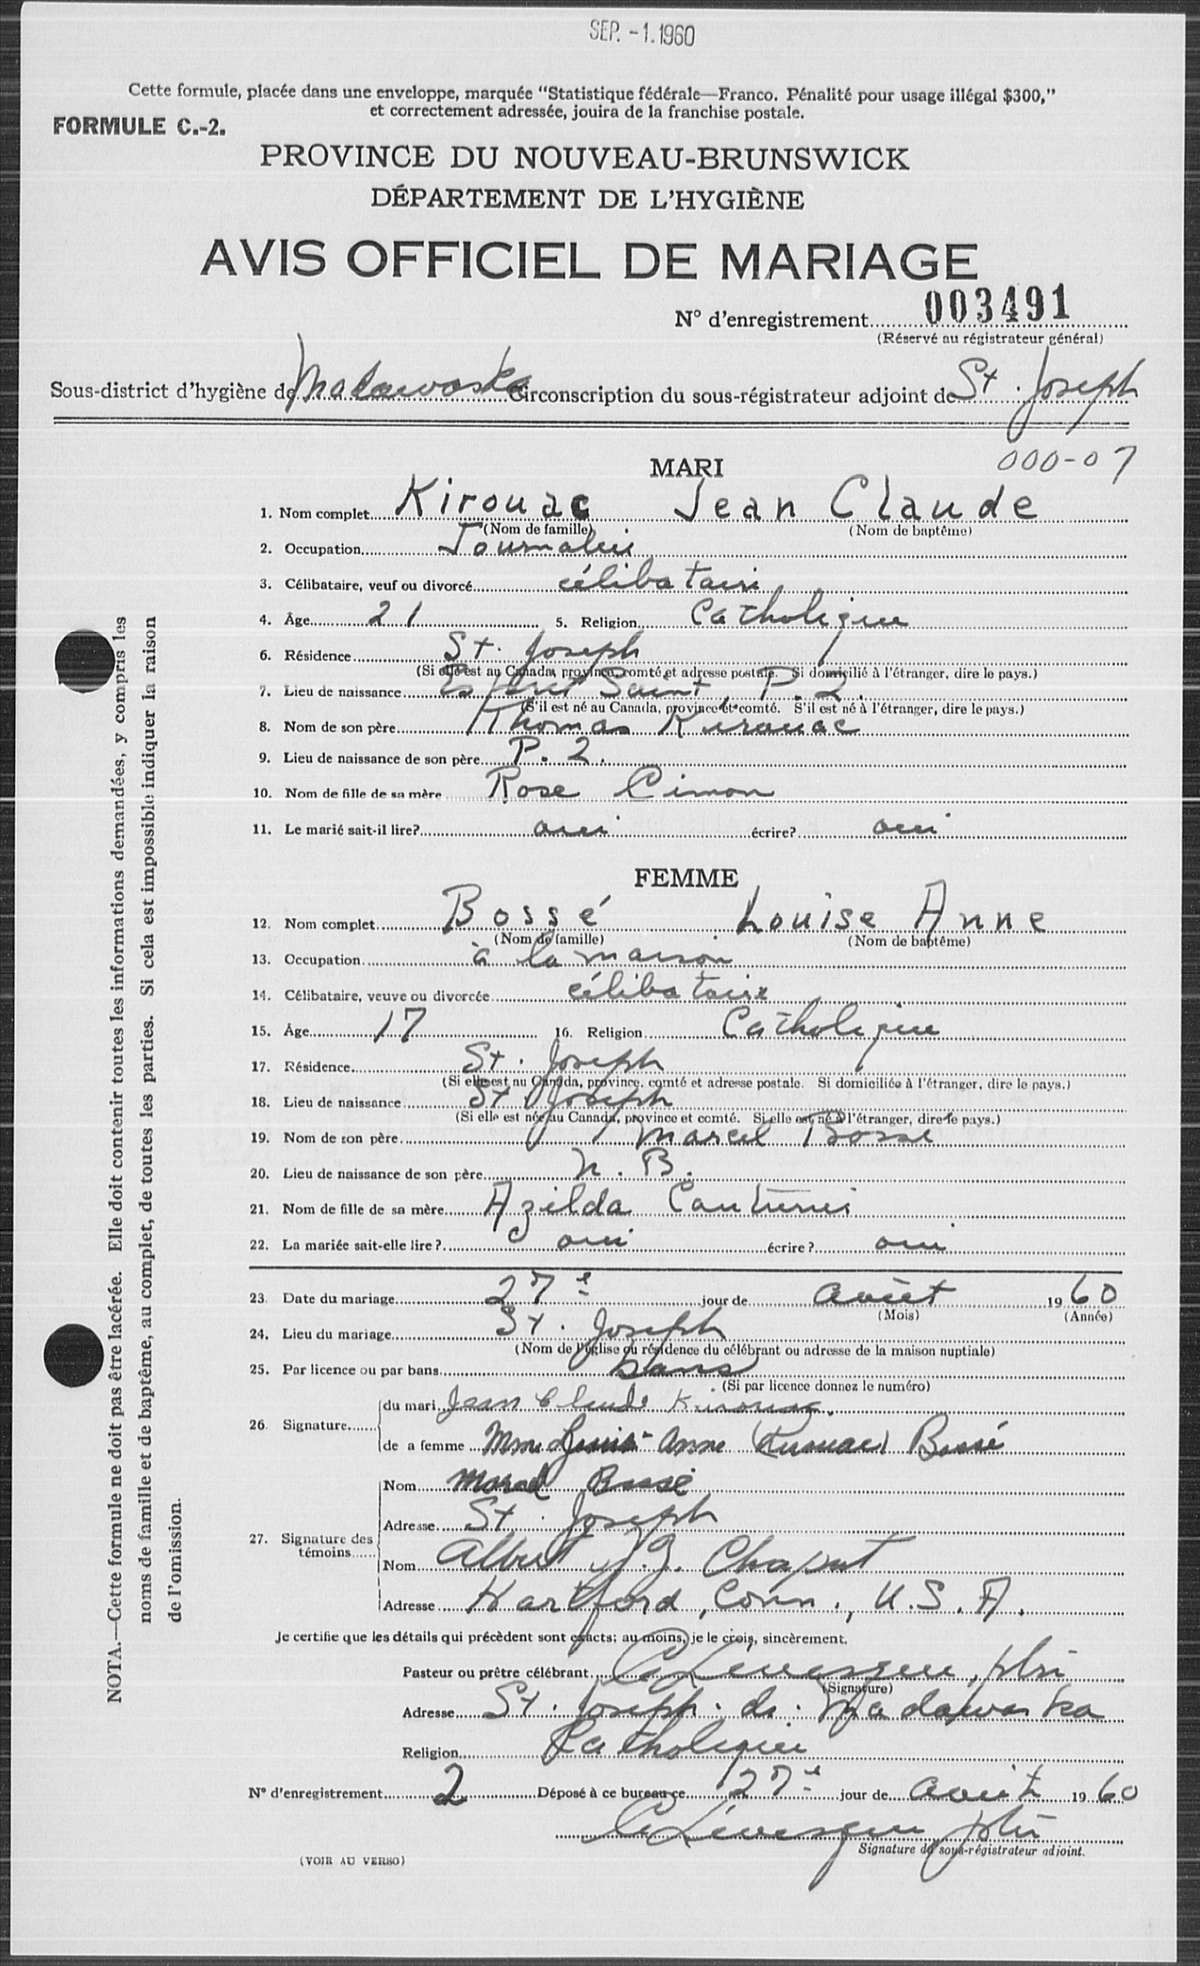 SEP. -1. 1960
Cette formule, placée dans une enveloppe, marquée "Statistique fédérale—Franco. Pénalité pour usage illégal $300,"
et correctement adressée, jouira de la franchise postale.
FORMULE C.-2.
PROVINCE DU NOUVEAU-BRUNSWICK
DÉPARTEMENT DE L'HYGIÈNE
AVIS OFFICIEL DE MARIAGE
N° d'enregistrement 003491
(Réservé au régistrateur général)
Sous-district d'hygiène de Madawaska Circonscription du sous-régistrateur adjoint de St. Joseph
000-07
MARI
1. Nom complet Kirouac Jean Claude
(Nom de famille) (Nom de baptême)
2. Occupation Journalier
3. Célibataire, veuf ou divorcé célibataire
4. Âge 21 5. Religion Catholique
6. Résidence St. Joseph
(Si elle est au Canada, province, comté et adresse postale. Si domicilié à l'étranger, dire le pays.)
7. Lieu de naissance Esprit Saint, P. 2.
(S'il est né au Canada, province et comté. S'il est né à l'étranger, dire le pays.)
8. Nom de son père Thomas Kirouac
9. Lieu de naissance de son père P. 2.
10. Nom de fille de sa mère Rose Cimon
11. Le marié sait-il lire? oui écrire? oui
FEMME
12. Nom complet Bossé Louise Anne
(Nom de famille) (Nom de baptême)
13. Occupation à la maison
14. Célibataire, veuve ou divorcée célibataire
15. Âge 17 16. Religion Catholique
17. Résidence St. Joseph
(Si elle est au Canada, province, comté et adresse postale. Si domiciliée à l'étranger, dire le pays.)
18. Lieu de naissance St. Joseph
(Si elle est née au Canada, province et comté. Si elle est née à l'étranger, dire le pays.)
19. Nom de son père Marcel Bossé
20. Lieu de naissance de son père N. B.
21. Nom de fille de sa mère Azilda Couturier
22. La mariée sait-elle lire? oui écrire? oui
23. Date du mariage 27e jour de août 1960
(Mois) (Année)
24. Lieu du mariage St. Joseph
(Nom de l'église ou résidence du célébrant ou adresse de la maison nuptiale)
25. Par licence ou par bans bans
(Si par licence donnez le numéro)
26. Signature du mari Jean Claude Kirouac
de a femme Mme Louise Anne (Kirouac) Bossé
27. Signature des témoins
Nom Marcel Bossé
Adresse St. Joseph
Nom Albert J. Chaput
Adresse Hartford, Conn., U.S.A.
Je certifie que les détails qui précèdent sont exacts; au moins, je le crois, sincèrement.
Pasteur ou prêtre célébrant Lévesque, ptre
(Signature)
Adresse St. Joseph de Madawaska
Religion Catholique
N° d'enregistrement 2 Déposé à ce bureau ce 27e jour de août 1960
Lévesque ptre
Signature du sous-régistrateur adjoint.
(VOIR AU VERSO)
NOTA.—Cette formule ne doit pas être lacérée. Elle doit contenir toutes les informations demandées, y compris les
noms de famille et de baptême, au complet, de toutes les parties. Si cela est impossible indiquer la raison
de l'omission.